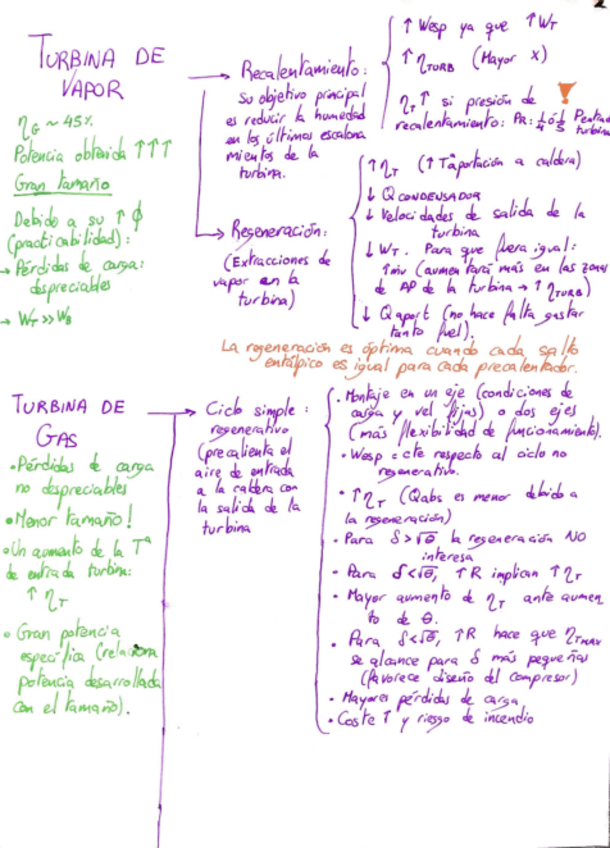 TURBINA DE
VAPOR
ηG ~ 45%
Potencia obtenida ↑↑↑
Gran tamaño
Debido a su ↑ ϕ
(practicabilidad):
→ Pérdidas de carga:
despreciables
→ WT >> WB
→ Recalentamiento:
su objetivo principal
es reducir la humedad
en los últimos escalona
mientos de la
turbina.
↑ Wesp ya que ↑ WT
↑ ηTURB (Mayor X)
ηT ↑ si presión de
recalentamiento: PR: 1/4 ó 1/5 Pentrad
turbina
→ Regeneración:
(Extracciones de
vapor en la
turbina)
↑ ηT (↑ Taportación a caldera)
↓ QCONDENSADOR
↓ Velocidades de salida de la
turbina
↓ WT. Para que fuera igual:
↑ṁv (aumentará más en las zonas
de AP de la turbina → ↑ ηTURB)
↓ Qaport (no hace falta gastar
tanto fuel).
La regeneración es óptima cuando cada salto
entálpico es igual para cada precalentador.
TURBINA DE
GAS
• Pérdidas de carga
no despreciables
• Menor tamaño!
• Un aumento de la Tª
de entrada turbina:
↑ ηT
• Gran potencia
específica (relaciona
potencia desarrollada
con el tamaño).
→ Ciclo simple:
regenerativo
(precalienta el
aire de entrada
a la caldera con
la salida de la
turbina
• Montaje en un eje (condiciones de
carga y vel fijas) o dos ejes
(más flexibilidad de funcionamiento).
• Wesp = cte respecto al ciclo no
regenerativo.
• ↑ ηT (Qabs es menor debido a
la regeneración)
• Para δ > √θ la regeneración NO
interesa
• Para δ < √θ, ↑ R implican ↑ ηT
• Mayor aumento de ηT ante aumen
to de θ.
• Para δ < √θ, ↑ R hace que ηTMAX
se alcance para δ más pequeñas
(favorece diseño del compresor)
• Mayores pérdidas de carga
• Coste ↑ y riesgo de incendio